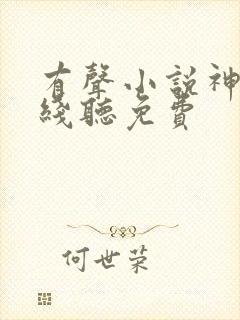 有聲小説神
綫聽免費
何世荣